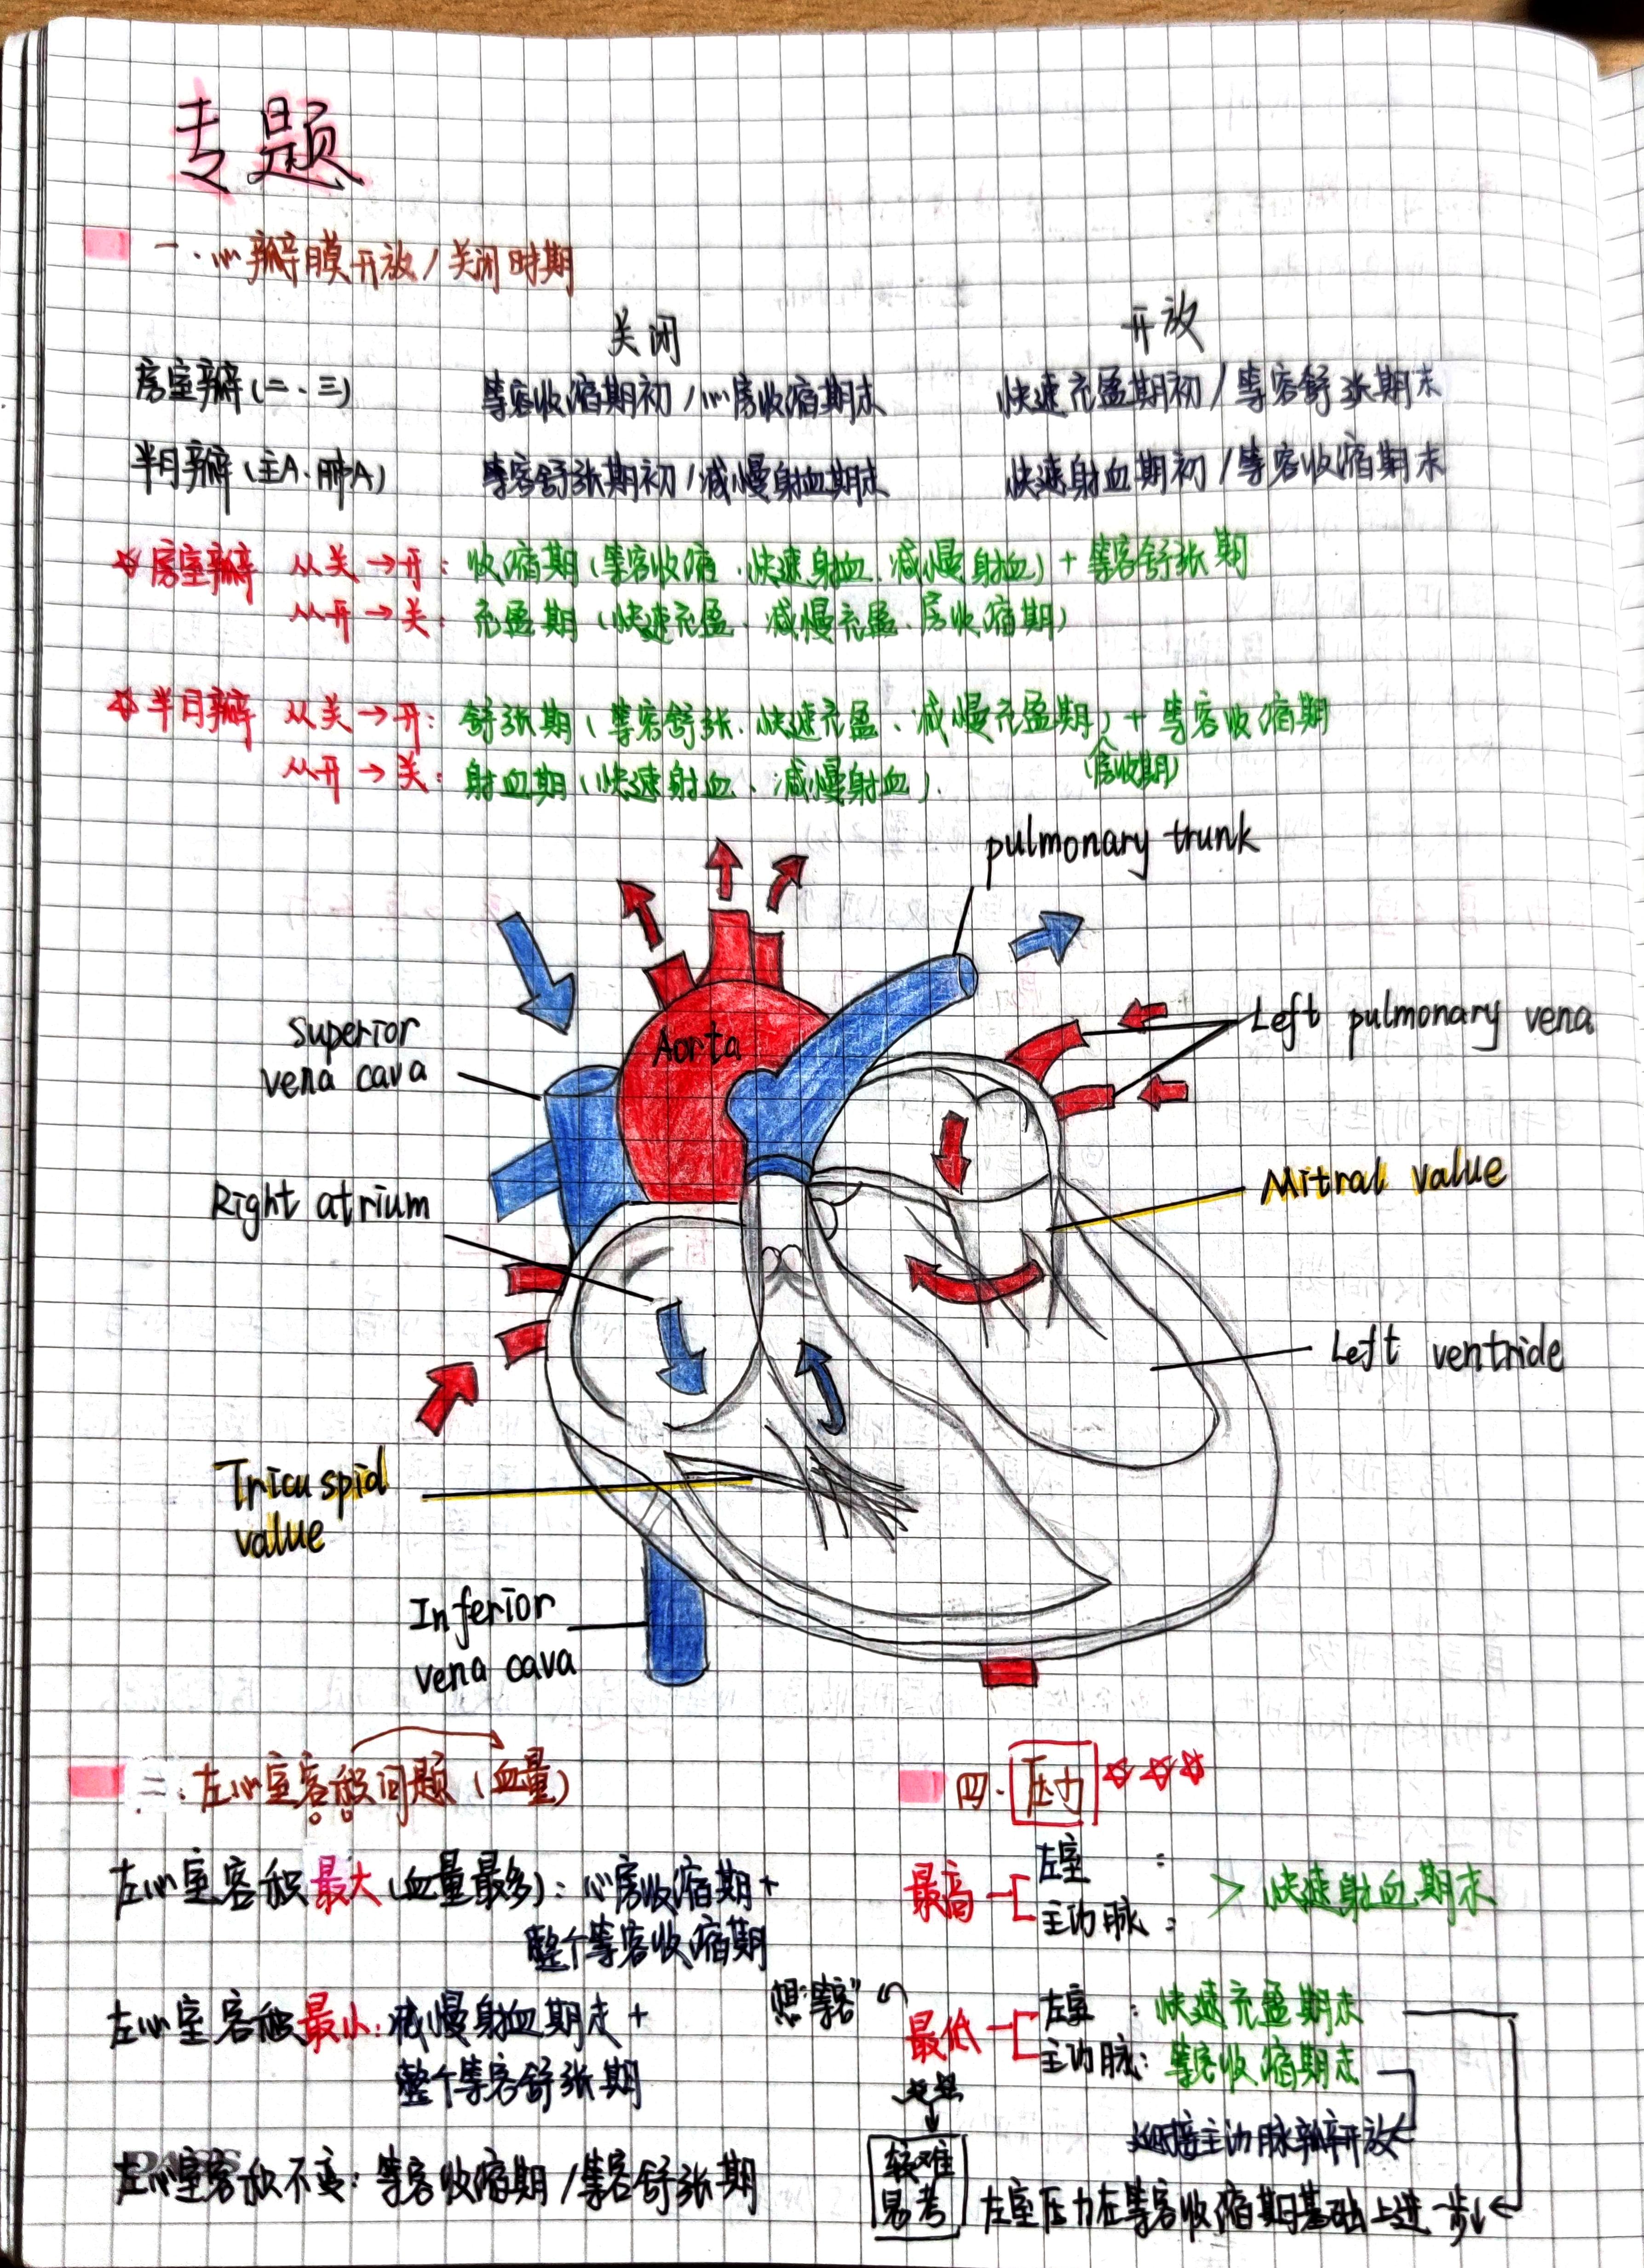 专题
一.心瓣膜开放/关闭时期
关闭 开放
房室瓣(二.三) 等容收缩期初/心房收缩期末 快速充盈期初/等容舒张期末
半月瓣(主A.肺A) 等容舒张期初/减慢射血期末 快速射血期初/等容收缩期末
☆房室瓣 从关→开: 收缩期(等容收缩.快速射血.减慢射血)+等容舒张期
从开→关: 充盈期(快速充盈.减慢充盈.房收缩期)
☆半月瓣 从关→开: 舒张期(等容舒张.快速充盈.减慢充盈期)+等容收缩期
(房收期)
从开→关: 射血期(快速射血.减慢射血).
pulmonary trunk
Superior
vena cava
Aorta
Left pulmonary vena
Right atrium
Mitral value
Left ventride
Tricuspid
value
Inferior
vena cava
二.左心室容积问题(血量)
左心室容积最大(血量最多):心房收缩期+
整个等容收缩期
左心室容积最小:减慢射血期末+
整个等容舒张期
左心室容积不变:等容收缩期/等容舒张期
四.压力☆☆☆
最高 左室 :
主动脉 :
> 快速射血期末
想"等容"
最低 左室 : 快速充盈期末
主动脉: 等容收缩期末
主动脉瓣开放
较难
易考
左室压力在等容收缩期基础上进一步↓